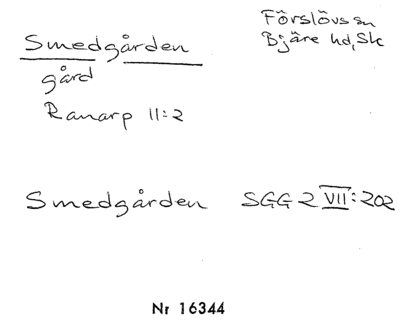 Smedgården
Förslövs sn
Bjäre hd, Sk
gård
Ranarp 11:2
Smedgården SGG 2 VII:202
Nr 16344